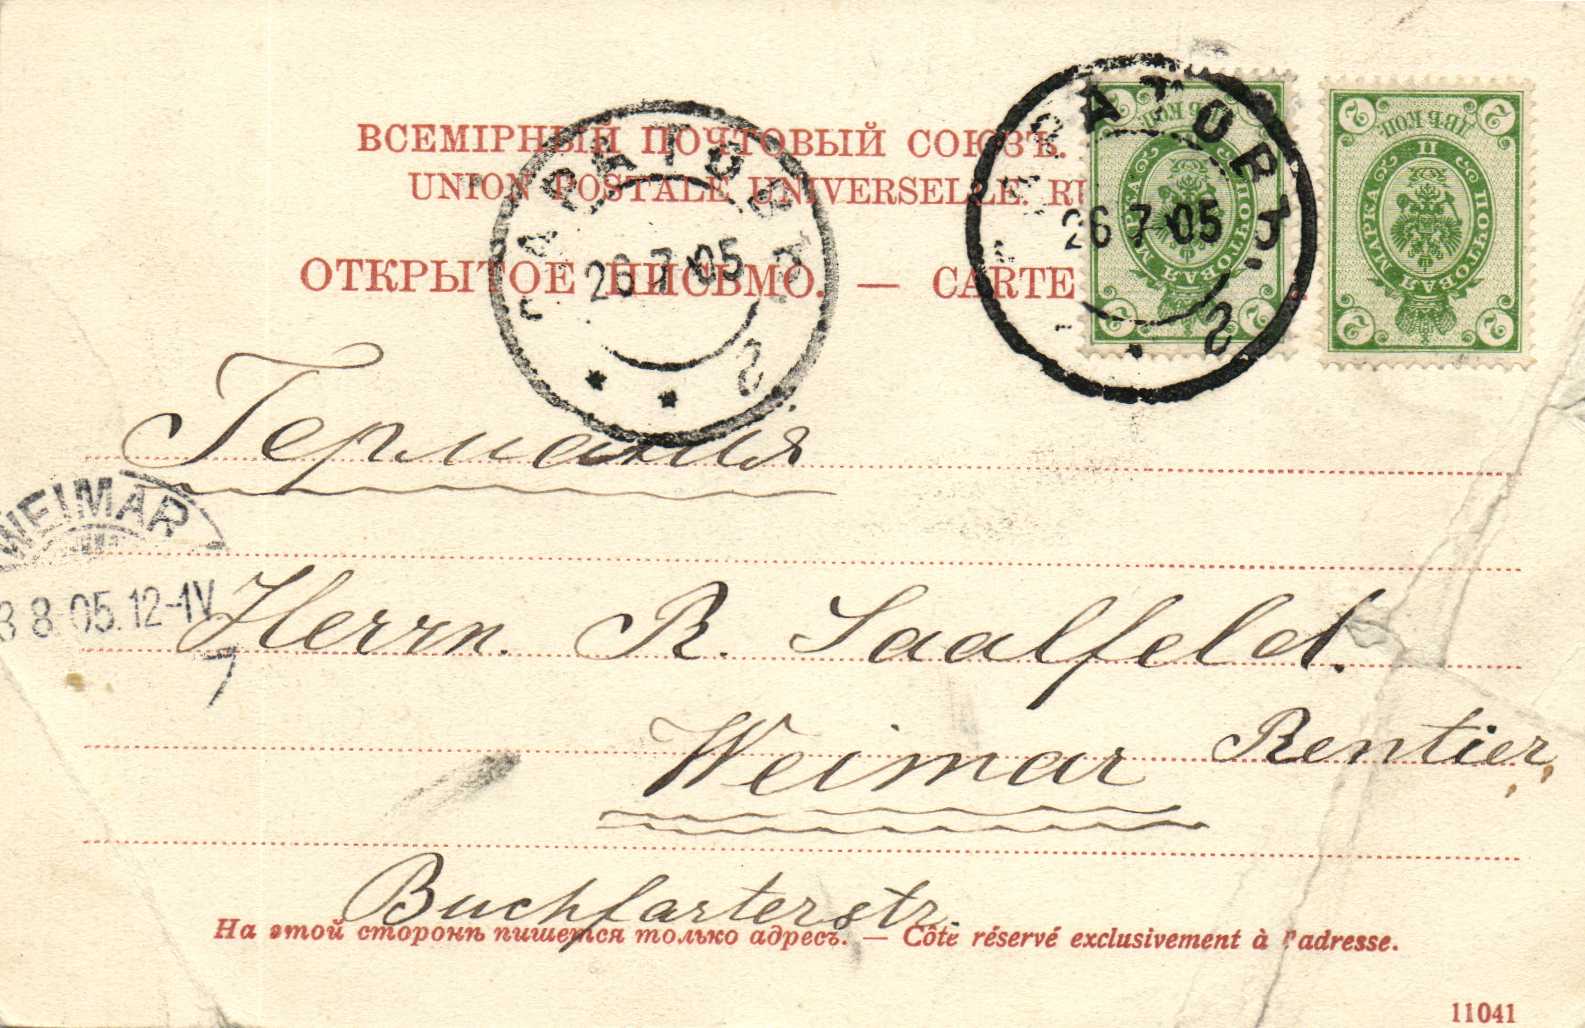 ВСЕМІРНЫЙ ПОЧТОВЫЙ СОЮЗЪ.
UNION POSTALE UNIVERSELLE. RU
ОТКРЫТОЕ ПИСЬМО. — CARTE
САРАТОВЪ
26 7 05
2
САРАТОВЪ
26 7 05
2
2 2
ДВѢ КОП.
II
ПОЧТОВАЯ МАРКА
2 2
2 2
ДВѢ КОП.
II
ПОЧТОВАЯ МАРКА
2 2
Германия
WEIMAR
3 8 05. 12-1V
7
Herrn. R. Saalfeld.
Weimar Rentier,
Buchfarterstr.
На этой сторонѣ пишется только адресъ. — Côte réservé exclusivement à l'adresse.
11041